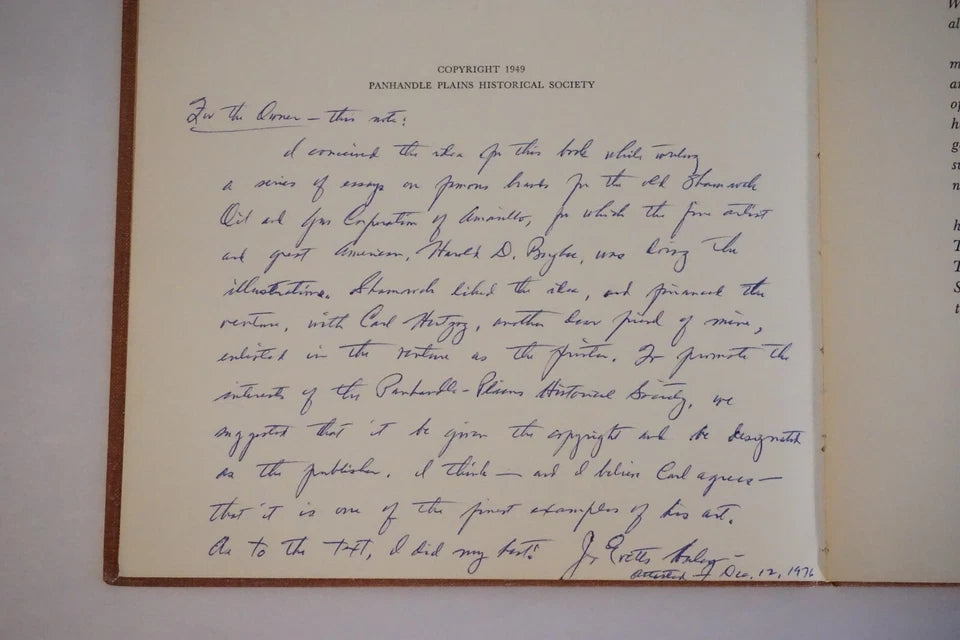 COPYRIGHT 1949
PANHANDLE PLAINS HISTORICAL SOCIETY
For the Owner — this note:
I conceived the idea for this book while writing
a series of essays on famous brands for the old Shamrock
Oil and Gas Corporation of Amarillo, for which the fine artist
and great American, Harold D. Bugbee, was doing the
illustrations. Shamrock liked the idea, and financed the
venture, with Carl Hertzog, another dear friend of mine,
enlisted in the venture as the printer. To promote the
interests of the Panhandle-Plains Historical Society, we
suggested that it be given the copyright and be designated
as the publisher. I think — and I believe Carl agrees —
that it is one of the finest examples of his art.
As to the text, I did my best!
J. Evetts Haley —
Dec. 12, 1976